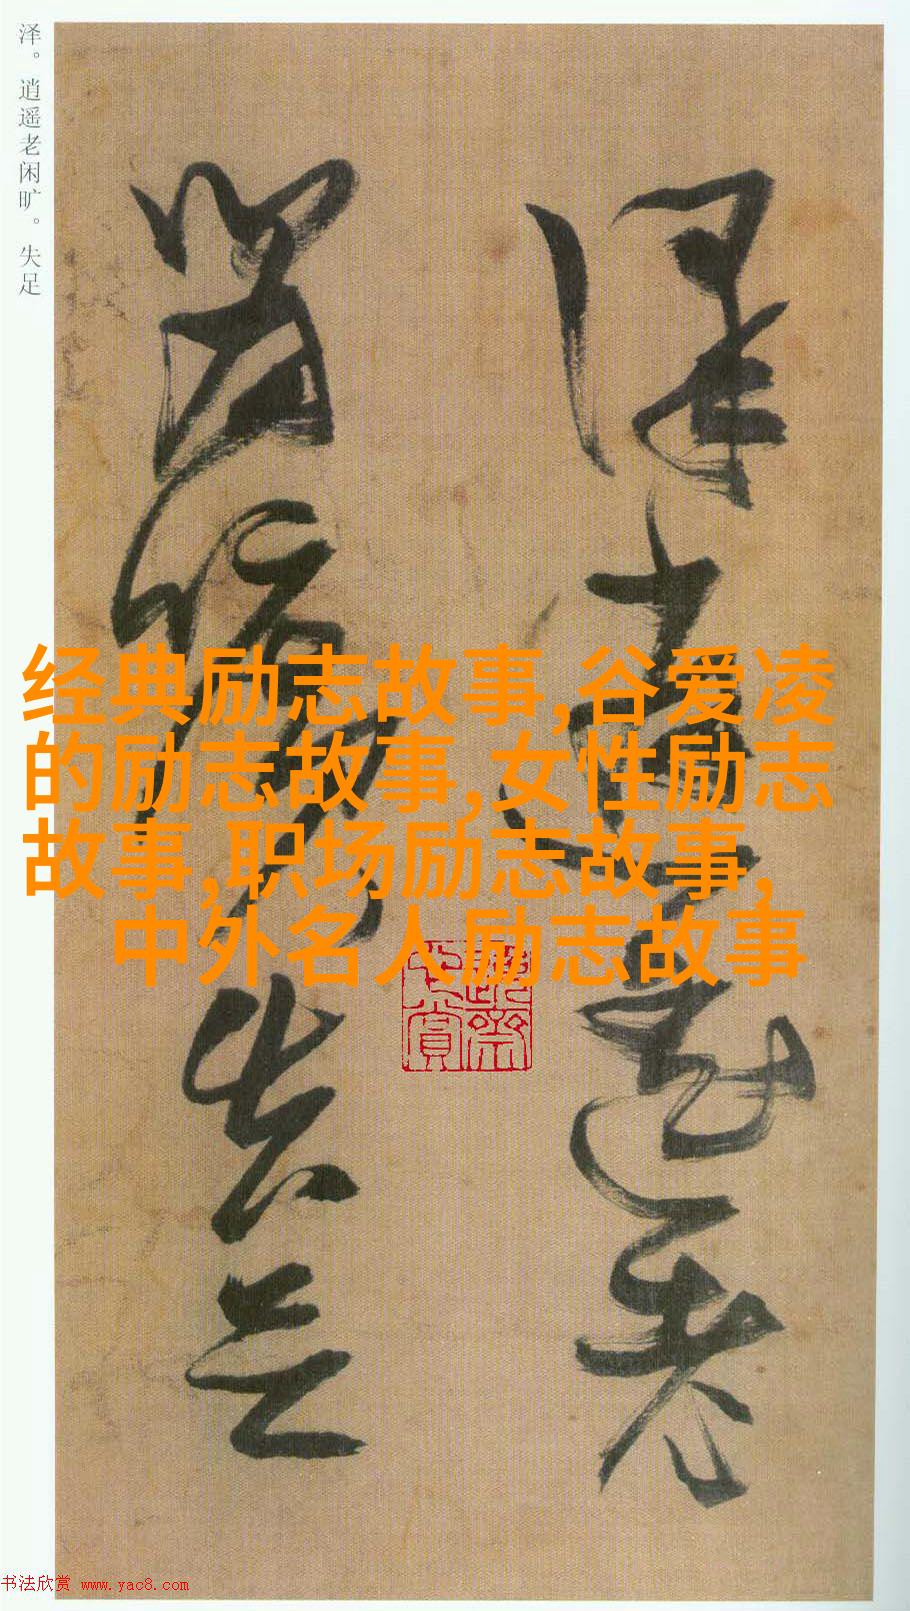 泽。逍遥老闲旷。失足
澤逍遥老
曠失足
经典励志故事,谷爱凌
的励志故事,女性励志
故事,职场励志故事,
中外名人励志故事
书法欣赏 www.yac8.com